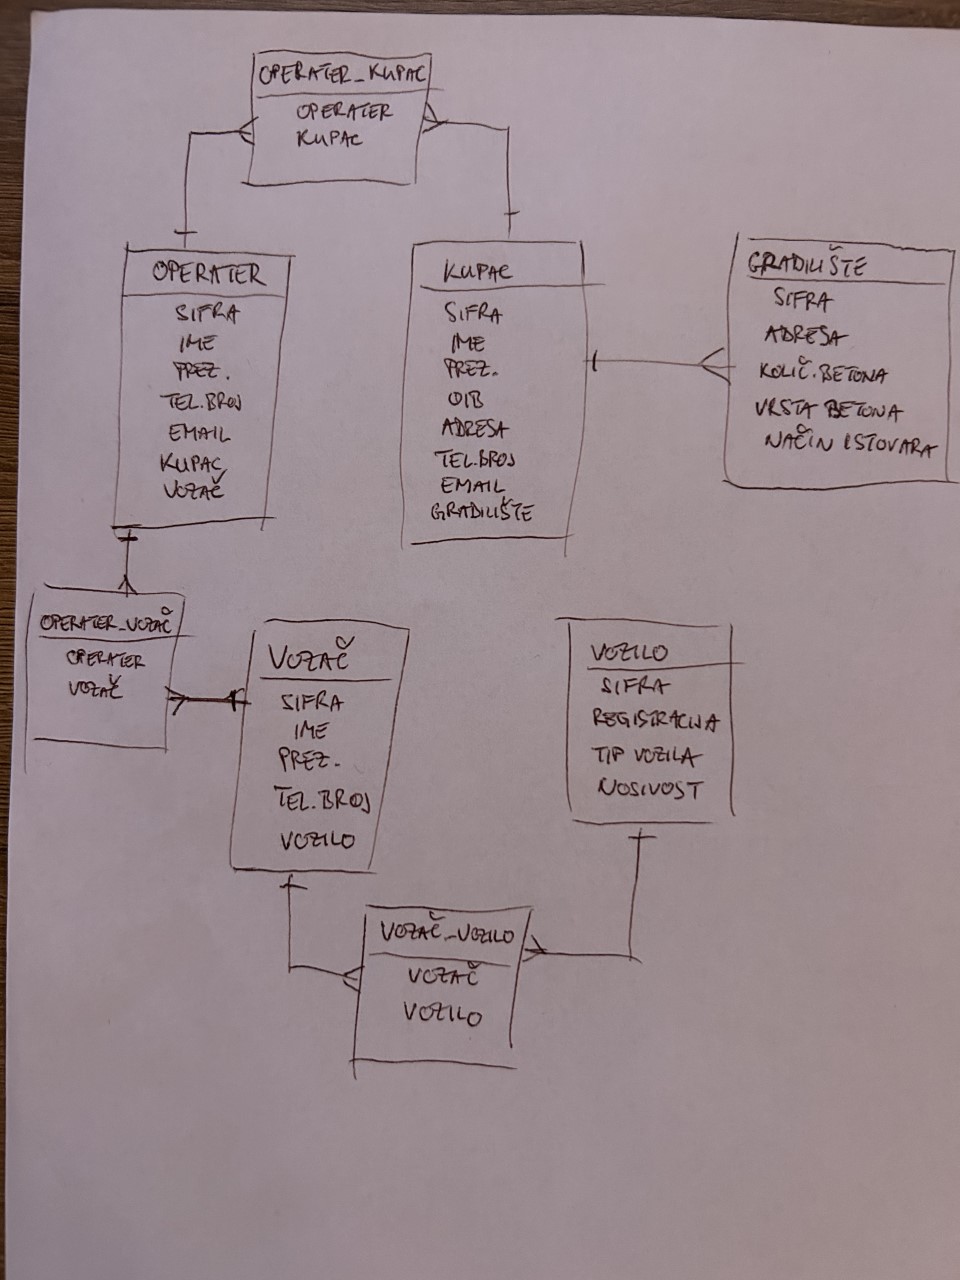 OPERATER_KUPAC
OPERATER
KUPAC
OPERATER
SIFRA
IME
PREZ.
TEL.BROJ
EMAIL
KUPAC
VOZAČ
KUPAC
SIFRA
IME
PREZ.
OIB
ADRESA
TEL.BROJ
EMAIL
GRADILIŠTE
GRADILIŠTE
SIFRA
ADRESA
KOLIČ.BETONA
VRSTA BETONA
NAČIN ISTOVARA
OPERATER_VOZAČ
OPERATER
VOZAČ
VOZAČ
SIFRA
IME
PREZ.
TEL.BROJ
VOZILO
VOZILO
SIFRA
REGISTRACIJA
TIP VOZILA
NOSIVOST
VOZAČ_VOZILO
VOZAČ
VOZILO